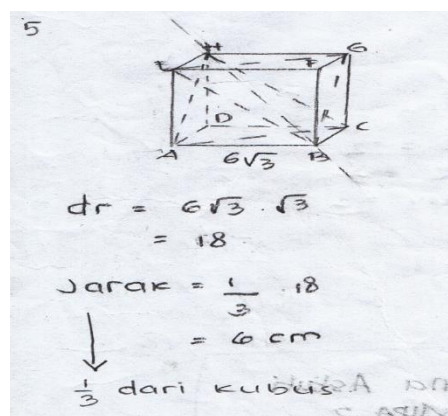 5
H G
E F
D C
A B
6√3
dr = 6√3 . √3
= 18
Jarak = 1/3 . 18
= 6 cm
1/3 dari kubus